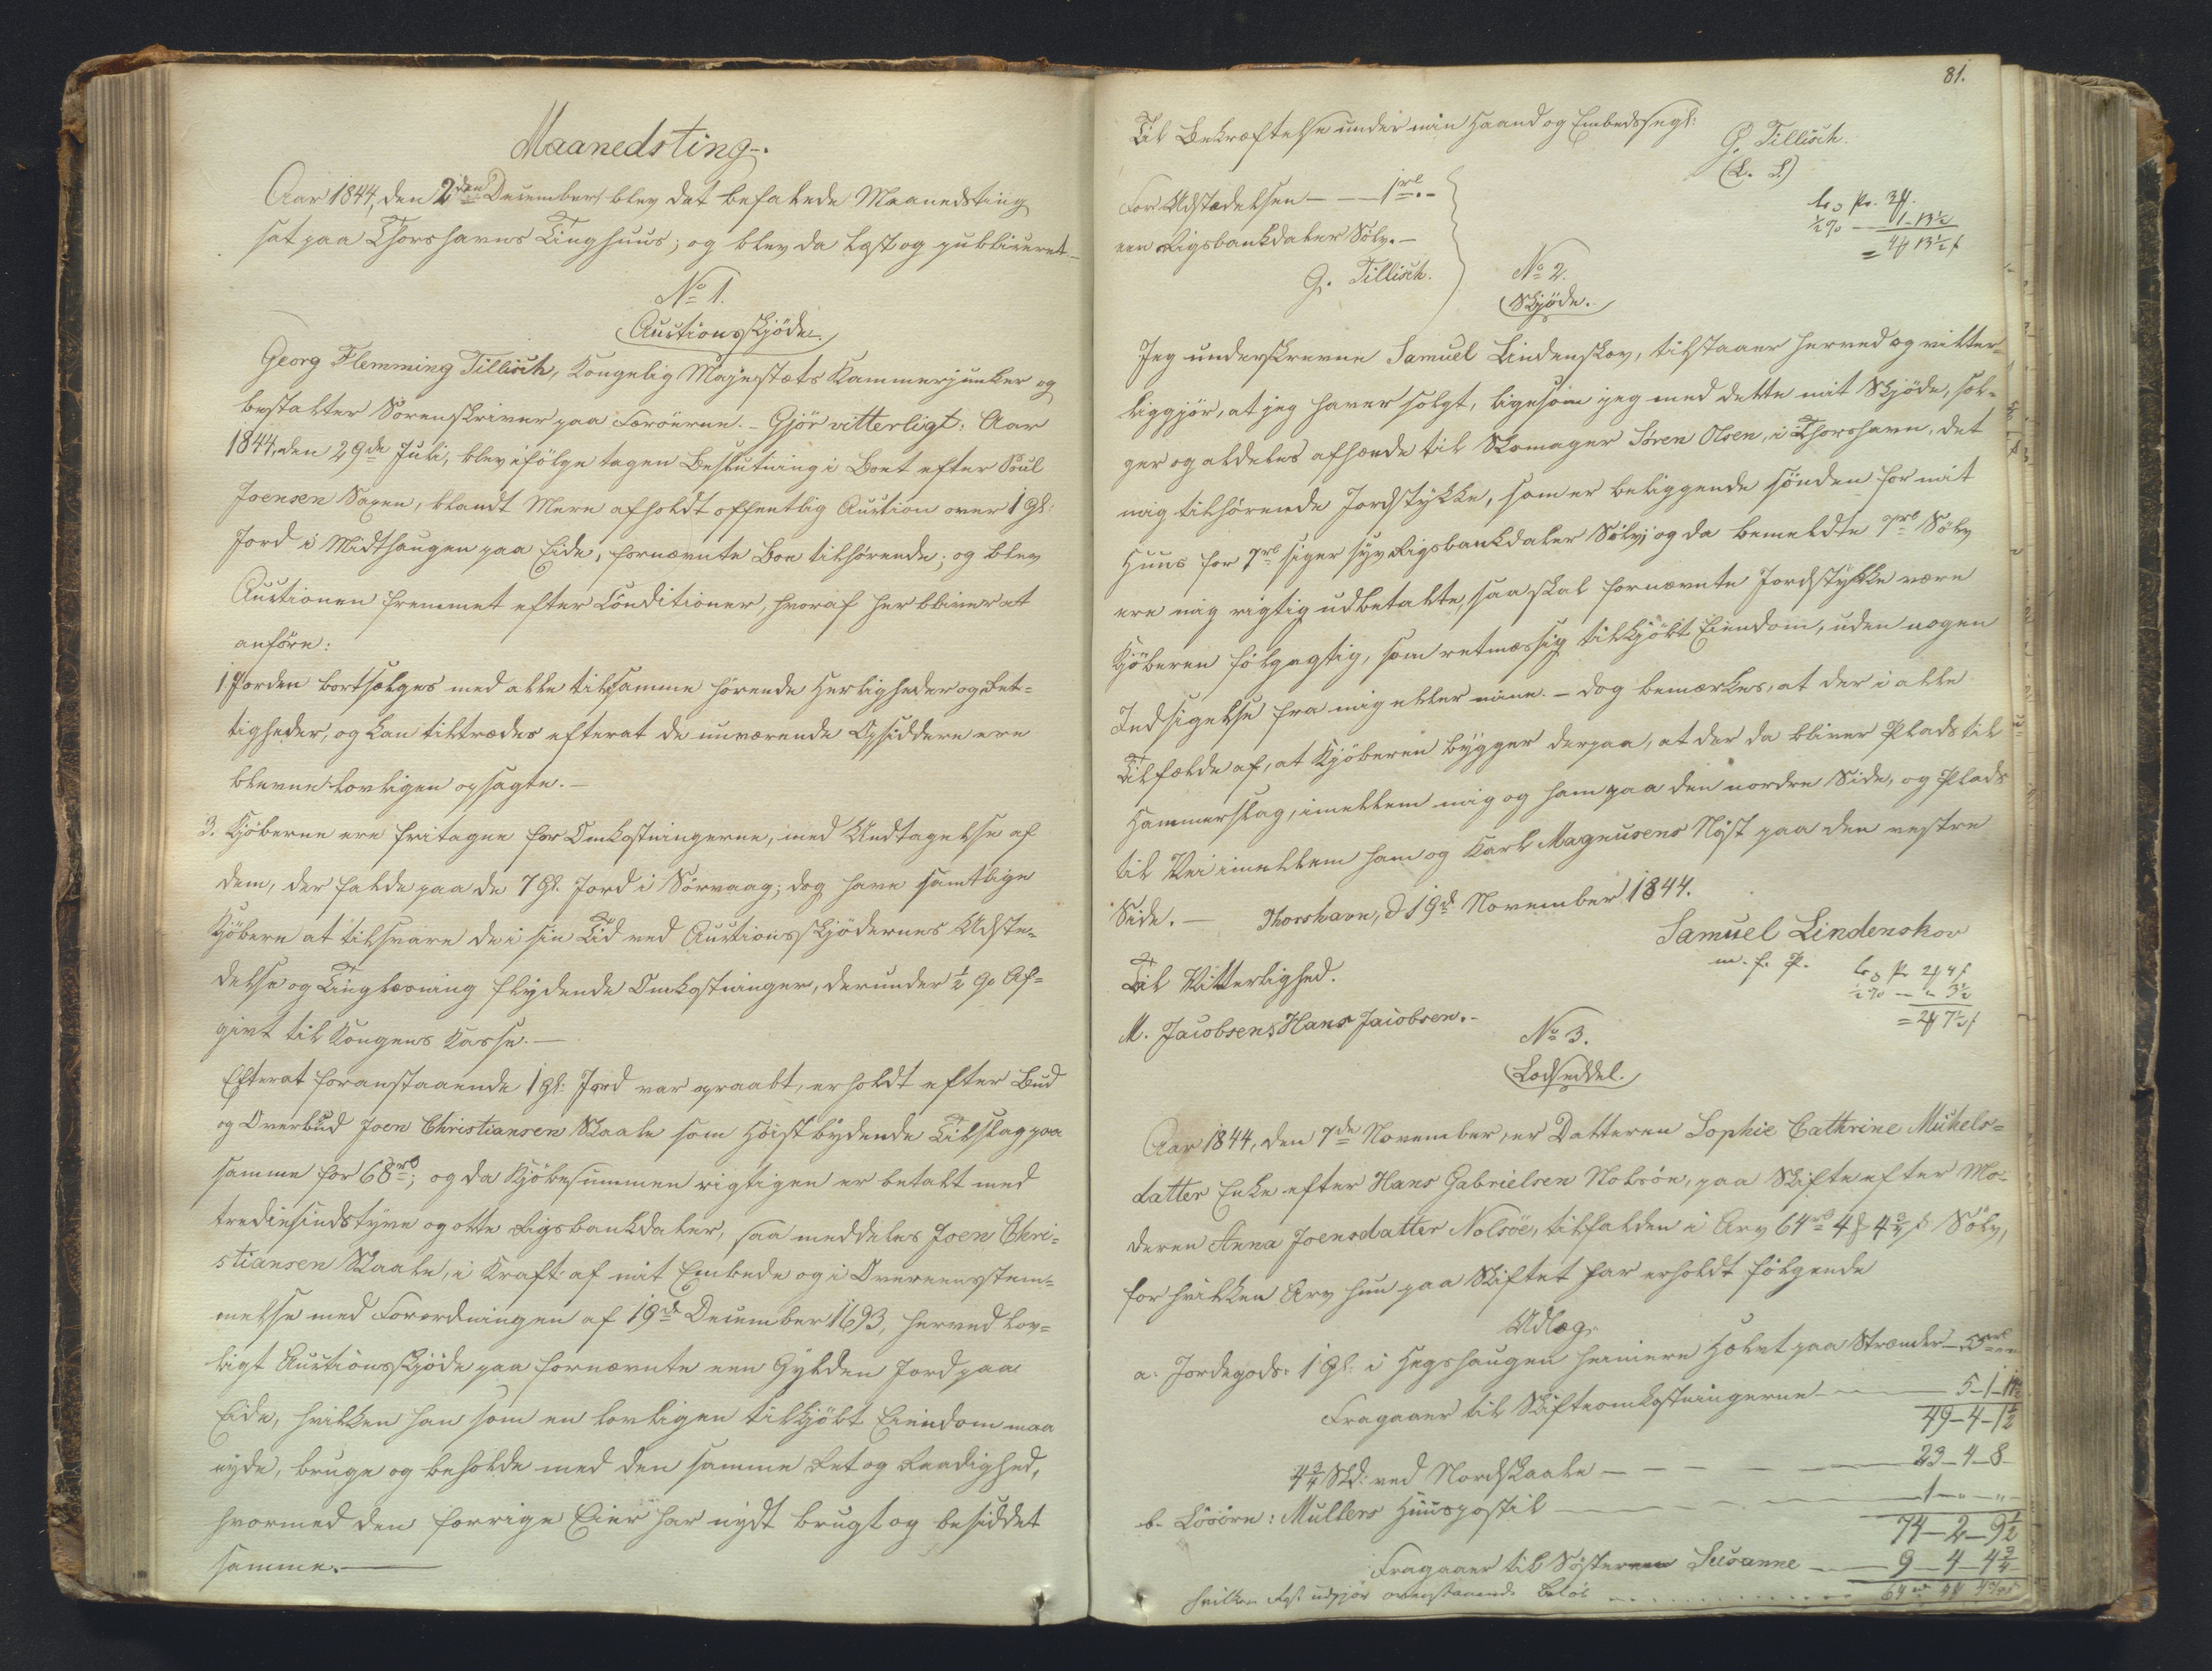 Maanedsting.
Aar 1844, den 2den December, blev det befalede Maanedsting
sat paa Thorshavns Tinghuus; og blev da læst og publiceret
No 1.
Auctionsskjöde.
Georg Flemming Tillisch, Kongelig Majestæts Kammerjunker og
bestalter Sorenskriver paa Færöerne. - Gjör vitterligt: Aar
1844, den 29de Juli, blev ifölge tagen Beslutning i Boet efter Poul
Joensen Saxen, blandt Mere afholdt offentlig Auction over 1 Gl:
Jord i Midthaugen paa Eide, fornævnte Boe tilhörende; og blev
Auctionen fremmet efter Conditioner, hvoraf her bliver at
anföre:
1. Jorden bortsælges med alle til samme hörende Herligheder og Ret=
tigheder, og kan tiltrædes efterat de nuværende Opsiddere ere
blevne lovligen opsagte. -
3. Kjöberne ere fritagne for Omkostningerne, med Undtagelse af
dem, der falde paa de 7 Gl. Jord i Sörvaag; dog have samtlige
Kjöbere at tilsvare de i sin Tid ved Auctionsskjödernes Udste=
delse og Tinglæsning flydende Omkostninger, derunder ½ % Af=
givt til Kongens Kasse. -
Efterat foranstaaende 1 Gl: Jord var opraabt, erholdt efter Bud
og Overbud Joen Christiansen Skaale som Höistbydende Tilslag paa
samme for 68 rb; og da Kjöbesummen rigtigen er betalt med
trediesindstyve og otte Rigsbankdaler, saa meddeles Joen Chri=
stiansen Skaale, i Kraft af mit Embede og i Overeenstem=
melse med Forordningen af 19de December 1693, herved lov=
ligt Auctionsskjöde paa fornævnte een Gylden Jord paa
Eide, hvilken han som en lovligen tilkjöbt Eiendom maa
nyde, bruge og beholde med den samme Ret og Raadighed,
hvormed den forrige Eier har nydt brugt og besiddet
samme. -
81.
Til Bekræftelse under min Haand og Embedssegl:
G. Tillisch.
(L. S.)
For Udstædelsen - - 1 rb. -
een Rigsbankdaler Sölv. -
G. Tillisch.
½ % - 1 - 13½
No 2.
Skjöde.
Jeg underskrevne Samuel Lindenskov, tilstaaer herved og vitter=
liggjör, at jeg haver solgt, ligesom jeg med dette mit Skjöde, sæl=
ger og aldeles afhænde til Skomager Sören Olsen, i Thorshavn, det
mig tilhörende Jordstykke, som er beliggende sönden for mit
Huus for 7 rb siger syv Rigsbankdaler Sölv; og da bemeldte 7 rb Sölv
ere mig rigtig udbetalte, saa skal fornævnte Jordstykke være
Kjöberen fölgagtig, som retmæssig tilkjöbt Eiendom, uden nogen
Indsigelse fra mig eller mine. - Dog bemærkes, at der i alle
Tilfælde af, at Kjöberen bygger derpaa, at der da bliver Plads til
Hammerslag, imellem mig og ham paa den nordre Side, og Plads
til Vei imellem ham og Karl Magnusens Nyst paa den vestre
Side. - Thorshavn, d 19d November 1844.
Samuel Lindenskov
m. f. P.
Til Vitterlighed.
M. Jacobsen. Hans Jacobsen. -
½ % - „ 3½
No 3.
Lodseddel.
Aar 1844, den 7de November, er Datteren Sophie Cathrine Michels=
datter Enke efter Hans Gabrielsen Nolsöe, paa Skifte efter Mo=
deren Anna Joensdatter Nolsöe, tilfalden i Arv 64 rb 4 ₰ 4¾ s Sölv,
for hvilken Arv hun paa Skiftet har erholdt fölgende
Udlæg.
a. Jordegods: 1 Gl. i Hegshaugen heimere Holvt paa Strænder - 55 rb „ „
Fragaaer til Skifteomkostningerne - 5-1-
49-4-1½
4¾ Skd: ved Nordskaale - 23-4-8
b. Lösöre: Mullers Huuspostil - 1 - „ - „
74-2-9½
Fragaaer til Sösteren Susanne - 9-4-4¾
hvilken Rest udgjör ovenstaaende Belöb